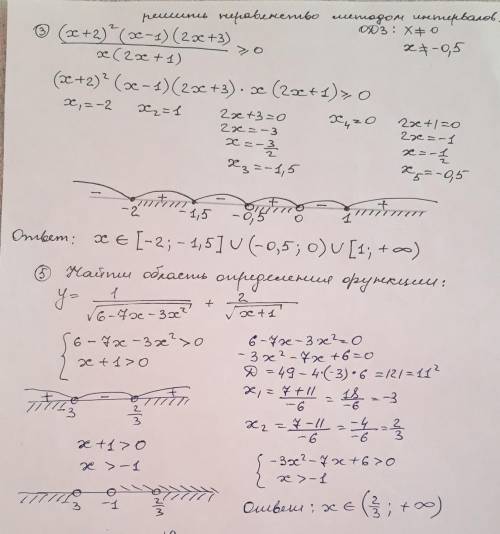 решить неравенство методом интервалов.
③ (x+2)²(x-1)(2x+3) / x(2x+1) ≥ 0
ОДЗ: x≠0
x≠-0,5
(x+2)²(x-1)(2x+3)·x(2x+1) ≥ 0
x₁=-2 x₂=1 2x+3=0 x₄=0 2x+1=0
2x=-3 2x=-1
x=-3/2 x=-1/2
x₃=-1,5 x₅=-0,5
- + - + - +
-2 -1,5 -0,5 0 1
Ответ: x ∈ [-2; -1,5] ∪ (-0,5; 0) ∪ [1; +∞)
⑤ Найти область определения функции:
y= 1/√(6-7x-3x²) + 2/√(x+1)
{ 6-7x-3x²>0
x+1>0
6-7x-3x²=0
-3x²-7x+6=0
D=49-4·(-3)·6=121=11²
x₁= (7+11)/-6 = 18/-6 = -3
x₂= (7-11)/-6 = -4/-6 = 2/3
+ - +
3 2/3
x+1>0
x>-1
{ -3x²-7x+6>0
x>-1
3 -1 2/3
Ответ: x∈(2/3; +∞)